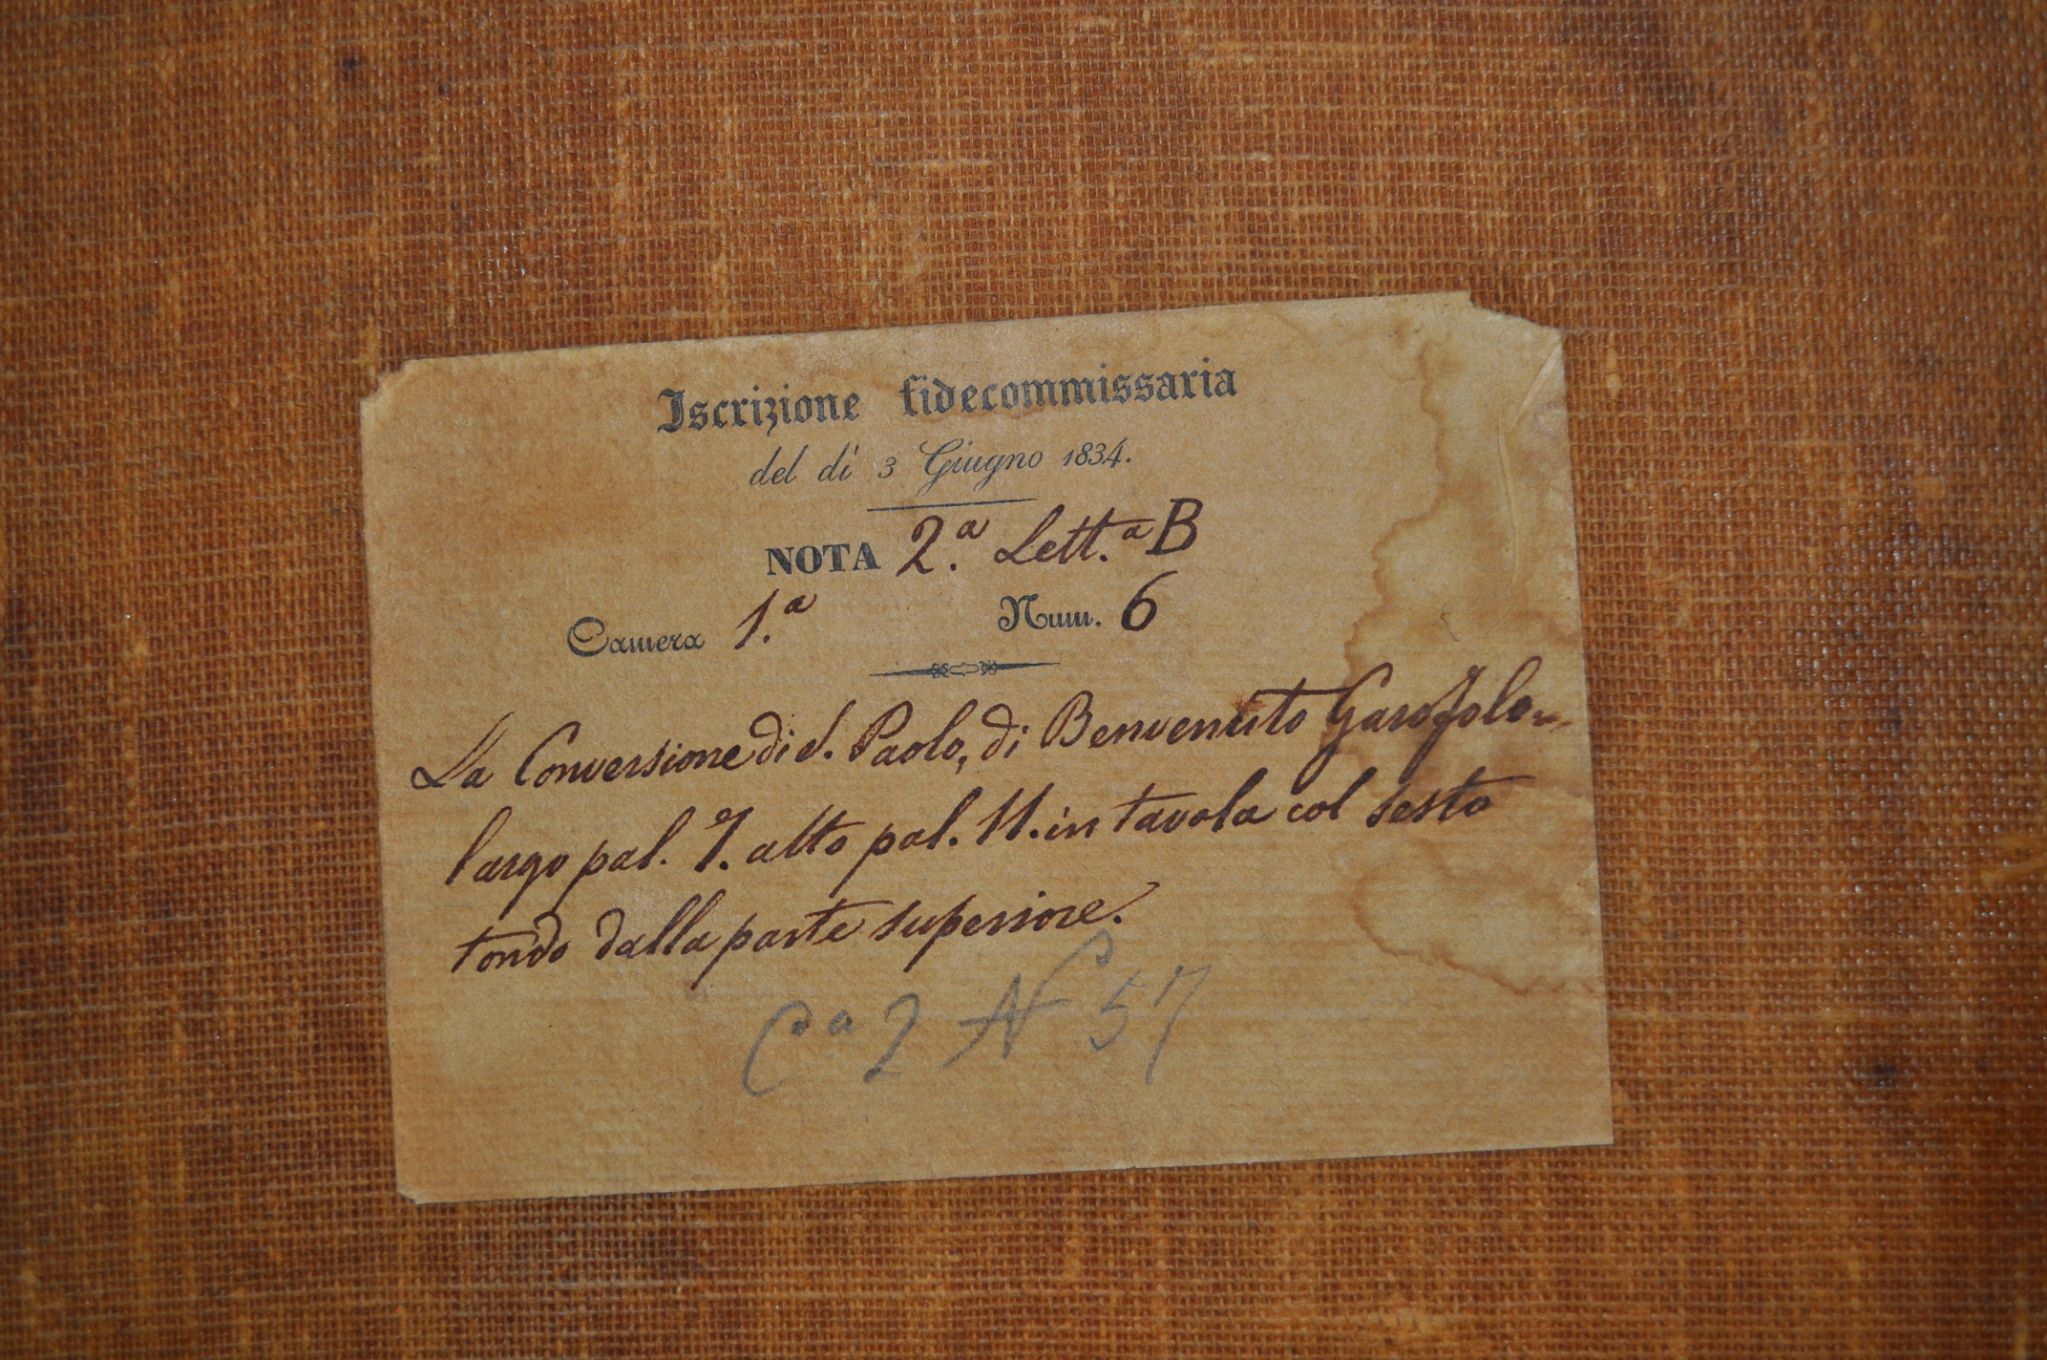 Iscrizione fidecommissaria
del dì 3 Giugno 1834.
NOTA 2.ª Lett.ª B
Camera 1.ª Num. 6
La Conversione di S. Paolo, di Benvenuto Garofolo =
largo pal. 7. alto pal. 11. in tavola col sesto
tondo dalla parte superiore.
Cª 2 N 57